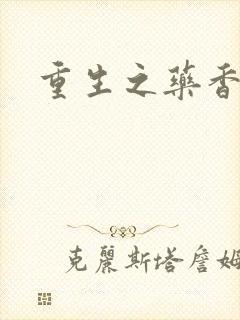 重生之藥香
克麗斯塔詹姆